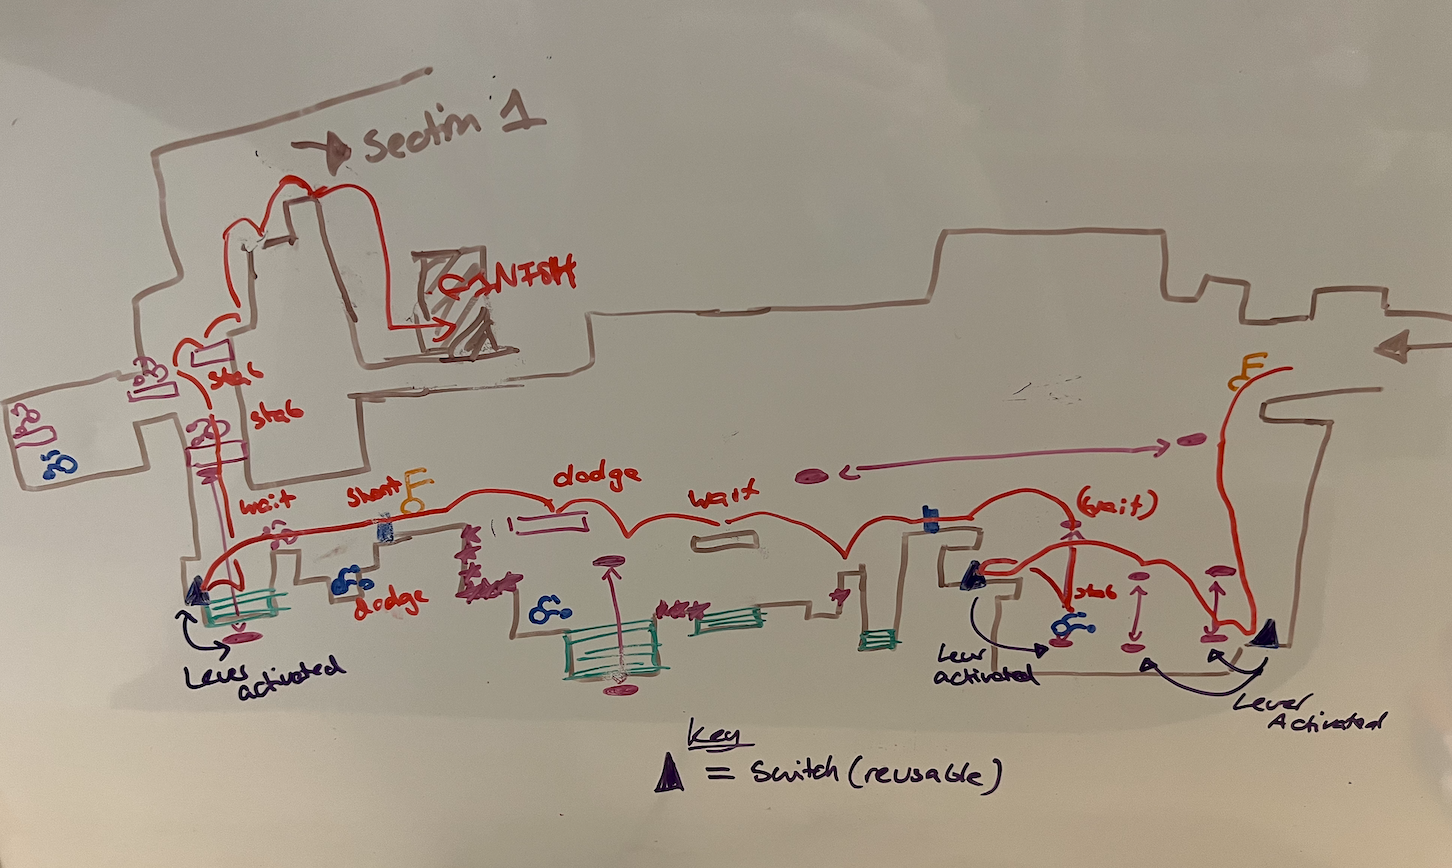 Section 1
FINISH
stab
stab
wait
shoot
dodge
wait
(wait)
dodge
stab
Lever
activated
Lever
activated
Lever
Activated
Key
= Switch (reusable)